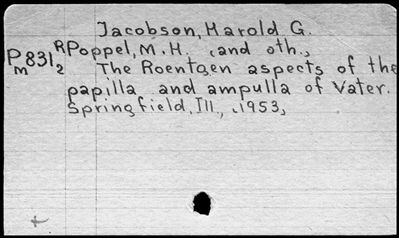 Jacobson, Harold G.
P831 R2 Poppel, M.H. (and oth.)
m The Roentgen aspects of the
papilla and ampulla of Vater.
Springfield, Ill., (1953)